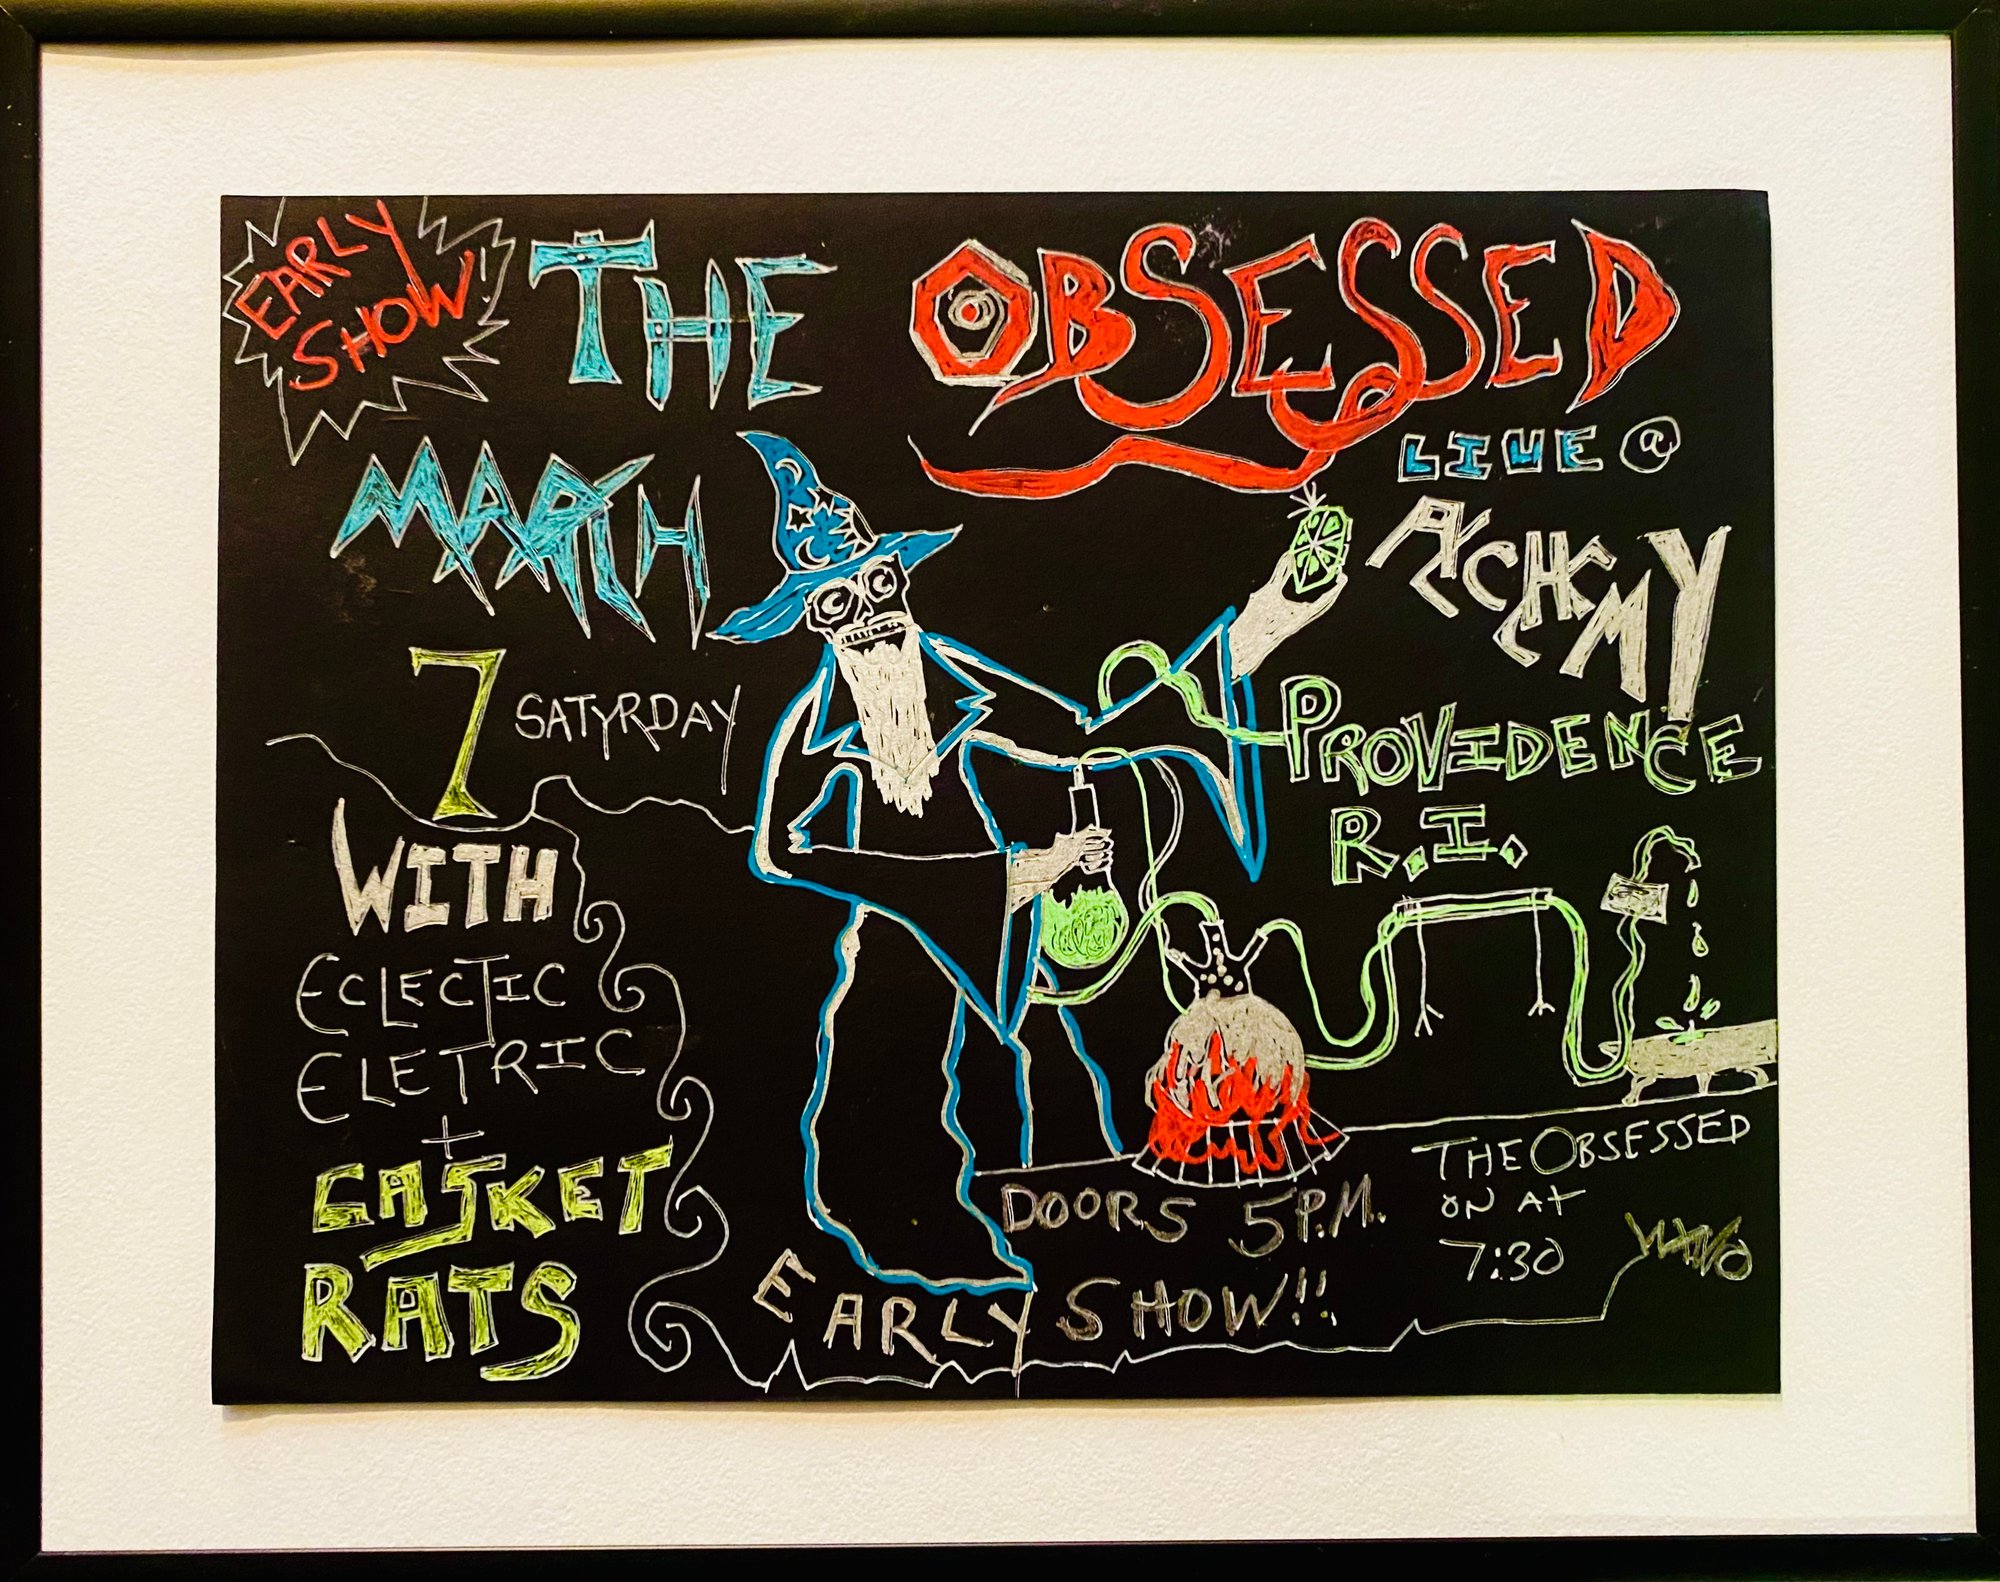 EARLY
SHOW!
THE OBSESSED
MARCH
7 SATYRDAY
LIVE @
ALCHEMY
PROVIDENCE
R.I.
WITH
ECLECTIC
ELETRIC
+
CASKET
RATS
DOORS 5P.M.
THE OBSESSED
ON AT
7:30
EARLY SHOW!!